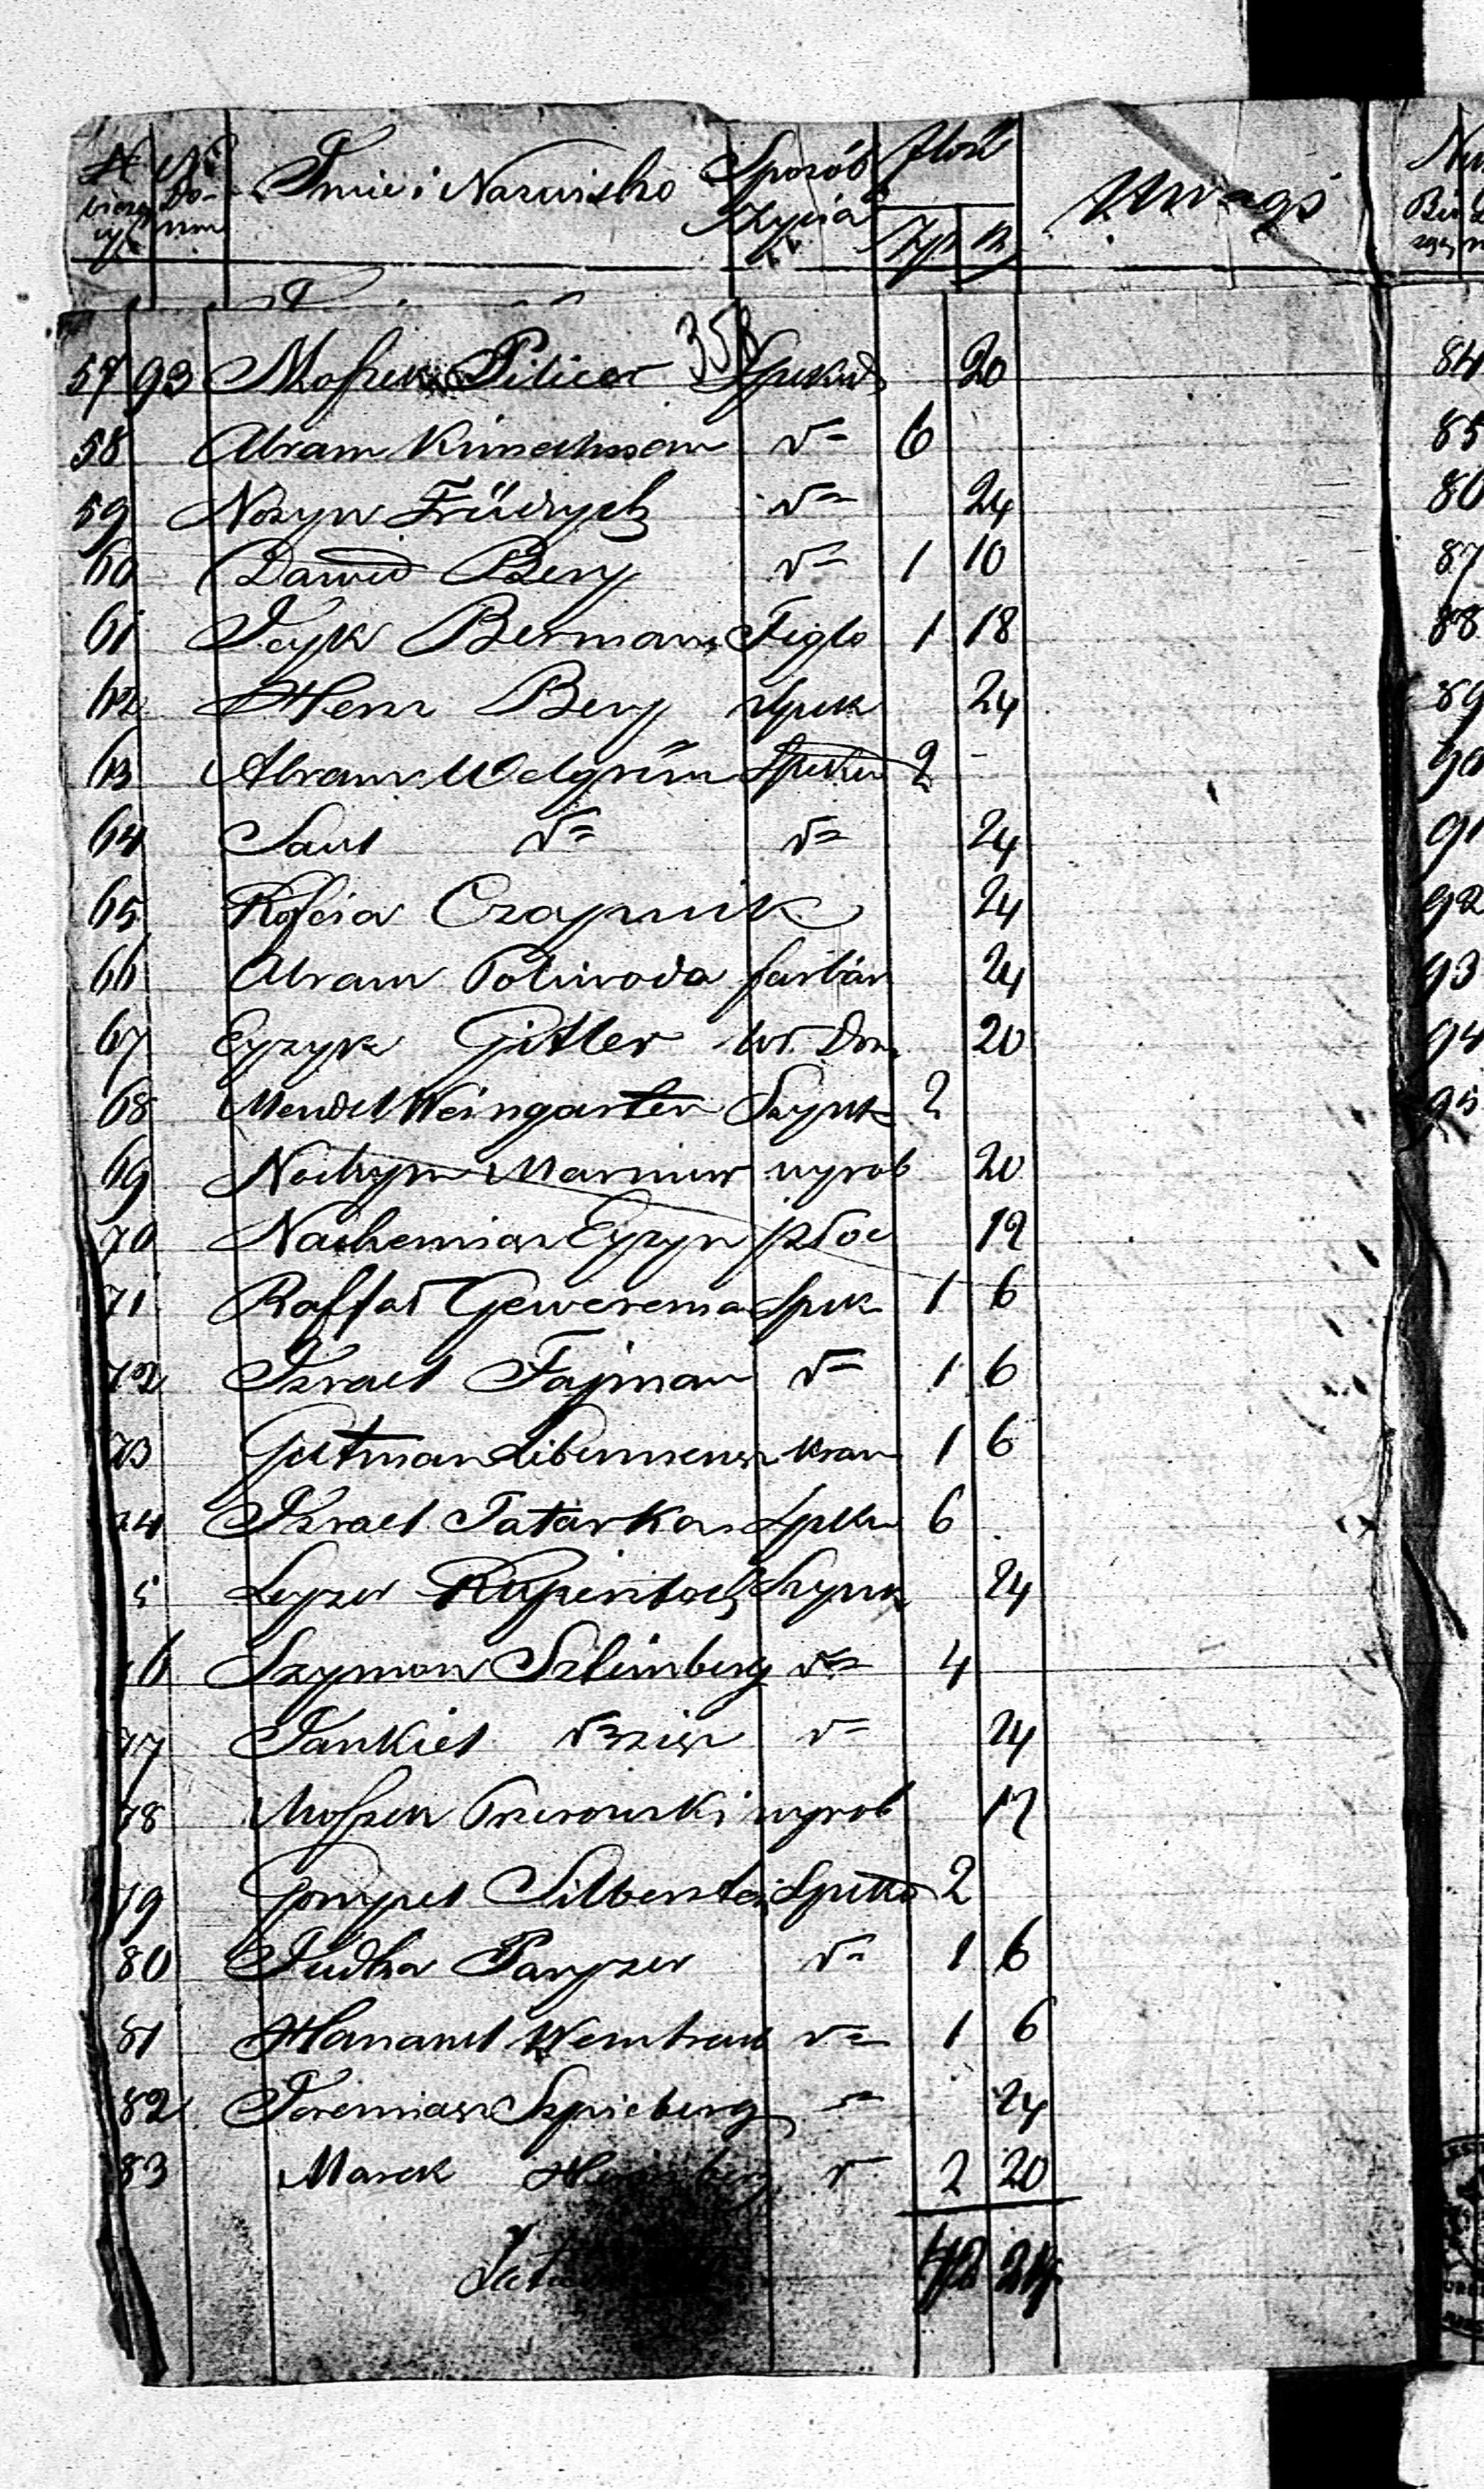 № bieżący № Domu Imie i Nazwisko Sposób życia Ilość Złp gr Uwagi
358
57 93 Moszek Pilicer Spekul 20
58 Abram Kunechman d= 6
59 Nozyn Früdrych d= 24
60 Dawid Berg d= 1 10
61 Icyk Berman Figlo 1 18
62 Hersz Berg spek 24
63 Abram Welgrün Spekul 2 -
64 Saul d= d= 24
65 Kofcia Czapnik 24
66 Abram Poliwoda farbar 24
67 Eyzyk Gitler Wł. Dom 20
68 Mendel Weingarten Szynk 2
69 Nochym Marmur wyrob 20
70 Nachemias Eyzyn 12
71 Raffał Gewerema Spek 1 6
72 Izrael Fajman d= 1 6
73 Gutman Libermensz kram 1 6
74 Izrael Tatarka Spek 6
5 Leyzer Kupersztoch Szynk 24
76 Szymon Szleinberg d= 4
77 Jankiel d= 24
78 Moszek Przerowski wyrob 12
79 Gompel Silberstei Spekul 2
80 Judka Paryzer d= 1 6
81 Hananel Weintraub d= 1 6
82 Jeremiasz Szpicberg = 24
83 Marek d 2 20
Latus 42 24
84
85
86
87
88
89
90
91
92
93
94
95